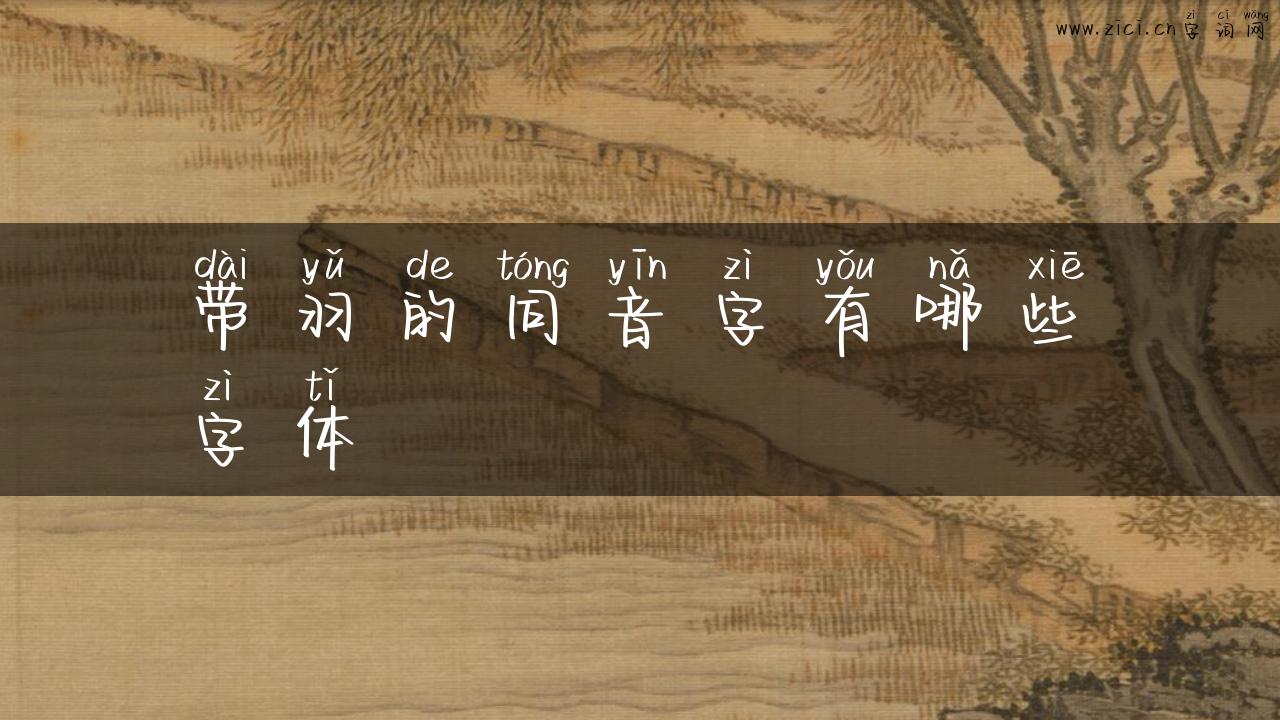 zì cí wǎng
www.zici.cn字词网
dài yǔ de tóng yīn zì yǒu nǎ xiē
带羽的同音字有哪些
zì tǐ
字体